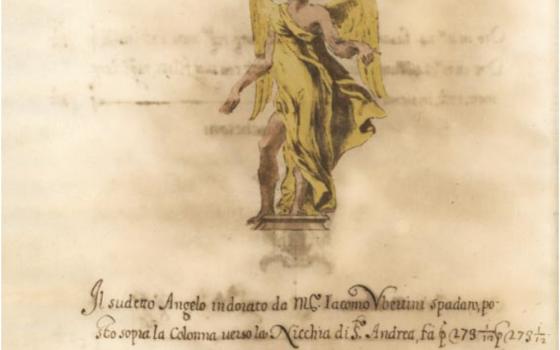 Il sudetto Angelo indorato da Mṣ. Iacomo Vbertini spadaro, po-
sto sopra la Colonna uerso la Nicchia di S. Andrea, fà